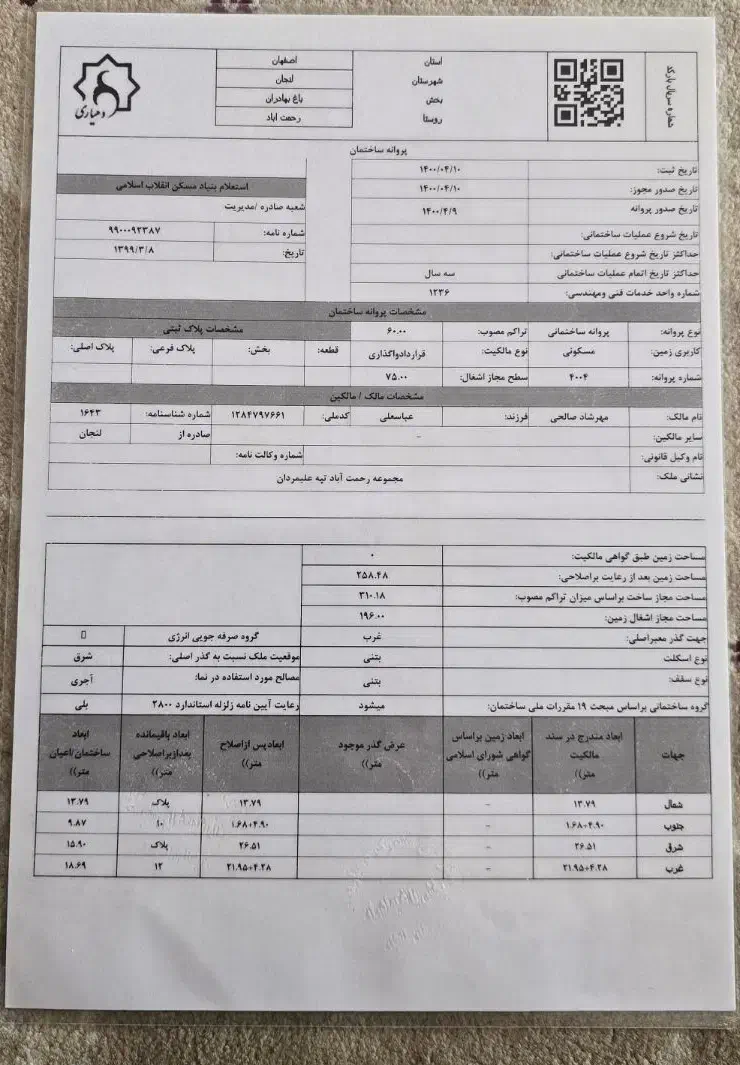 شماره سریال بارکد
استان اصفهان
شهرستان لنجان
بخش باغ بهادران
روستا رحمت آباد
دهیاری
پروانه ساختمان
تاریخ ثبت: ۱۴۰۰/۰۴/۱۰
تاریخ صدور مجوز: ۱۴۰۰/۰۴/۱۰
استعلام بنیاد مسکن انقلاب اسلامی
تاریخ صدور پروانه ۱۴۰۰/۴/۹
شعبه صادره /مدیریت
تاریخ شروع عملیات ساختمانی:
شماره نامه: ۹۹۰۰۰۹۲۳۸۷
حداکثر تاریخ شروع عملیات ساختمانی:
تاریخ: ۱۳۹۹/۳/۸
حداکثر تاریخ اتمام عملیات ساختمانی سه سال
شماره واحد خدمات فنی ومهندسی: ۱۲۳۶
مشخصات پروانه ساختمان
نوع پروانه: پروانه ساختمانی تراکم مصوب: ۶۰.۰۰ مشخصات پلاک ثبتی
کاربری زمین: مسکونی نوع مالکیت: قراردادواگذاری قطعه: بخش: پلاک فرعی: پلاک اصلی:
شماره پروانه: ۴۰۰۴ سطح مجاز اشغال: ۷۵.۰۰
مشخصات مالک / مالکین
نام مالک: مهرشاد صالحی فرزند: عباسعلی کدملی: ۱۲۸۴۷۹۷۶۶۱ شماره شناسنامه: ۱۶۴۳
سایر مالکین: - صادره از لنجان
نام وکیل قانونی: شماره وکالت نامه:
نشانی ملک: مجموعه رحمت آباد تپه علیمردان
مساحت زمین طبق گواهی مالکیت: ۰
مساحت زمین بعد از رعایت براصلاحی: ۲۵۸.۴۸
مساحت مجاز ساخت براساس میزان تراکم مصوب: ۳۱۰.۱۸
مساحت مجاز اشغال زمین: ۱۹۶.۰۰
جهت گذر معبراصلی: غرب گروه صرفه جویی انرژی
نوع اسکلت بتنی موقعیت ملک نسبت به گذر اصلی: شرق
نوع سقف: بتنی مصالح مورد استفاده در نما: آجری
گروه ساختمانی براساس مبحث ۱۹ مقررات ملی ساختمان: میشود رعایت آیین نامه زلزله استاندارد ۲۸۰۰ بلی
جهات ابعاد مندرج در سند مالکیت متر(( ابعاد زمین براساس گواهی شورای اسلامی متر(( عرض گذر موجود متر(( ابعادپس ازاصلاح متر(( ابعاد باقیمانده بعدازبراصلاحی متر(( ابعاد ساختمان/اعیان متر((
شمال ۱۳.۷۹ - ۱۳.۷۹ پلاک ۱۳.۷۹
جنوب ۱.۶۸+۴.۹۰ - ۱.۶۸+۴.۹۰ ۱۰ ۹.۸۷
شرق ۲۶.۵۱ - ۲۶.۵۱ پلاک ۱۵.۹۰
غرب ۲۱.۹۵+۴.۲۸ - ۲۱.۹۵+۴.۲۸ ۱۲ ۱۸.۶۹